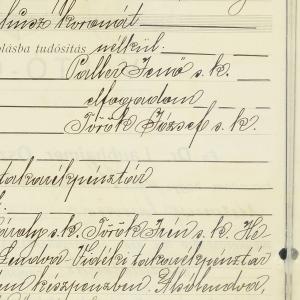 húsz koronát
olásba tudósítás nélkül.
Paller Jenő s. k.
elfogadom
Török József s. k.
takarékpénztár
Károly s. k. Török Irén s. k. He-
Lendva-Vidéki takarékpénztár
készpénzben. Alsólendva,